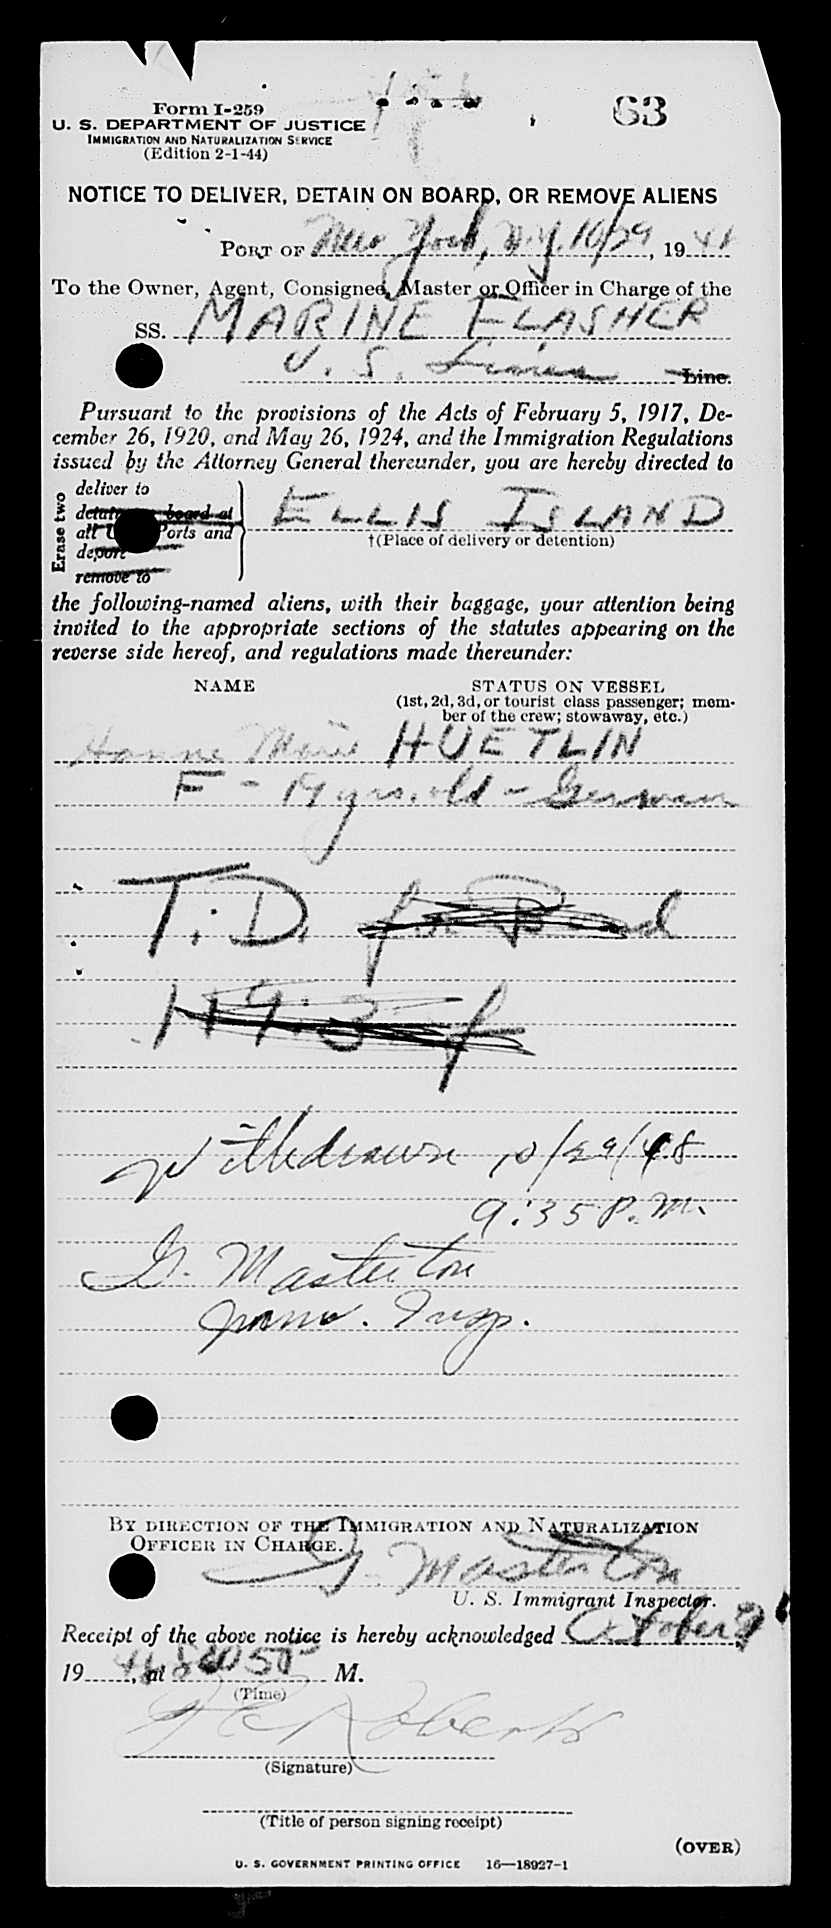 63
Form I-259
U. S. DEPARTMENT OF JUSTICE
IMMIGRATION AND NATURALIZATION SERVICE
(Edition 2-1-44)
NOTICE TO DELIVER, DETAIN ON BOARD, OR REMOVE ALIENS
PORT OF New York, N.Y. 10/29, 19
To the Owner, Agent, Consignee, Master or Officer in Charge of the
SS. MARINE FLASHER
U. S. Lines Line.
Pursuant to the provisions of the Acts of February 5, 1917, De-
cember 26, 1920, and May 26, 1924, and the Immigration Regulations
issued by the Attorney General thereunder, you are hereby directed to
Erase two
deliver to
detain board at
all Ports and
deport
remove to
ELLIS ISLAND
†(Place of delivery or detention)
the following-named aliens, with their baggage, your attention being
invited to the appropriate sections of the statutes appearing on the
reverse side hereof, and regulations made thereunder:
NAME
STATUS ON VESSEL
(1st, 2d, 3d, or tourist class passenger; mem-
ber of the crew; stowaway, etc.)
Hanne Marie HUETLIN
F - 19 yrs. old - German
T.D. for Bond
Withdrawn 10/29/48
9:35 P.M.
G. Masterton
Imm. Insp.
BY DIRECTION OF THE IMMIGRATION AND NATURALIZATION
OFFICER IN CHARGE.
G. Masterton
U. S. Immigrant Inspector.
Receipt of the above notice is hereby acknowledged October
19, at M.
(Time)
Roberts
(Signature)
(Title of person signing receipt)
(OVER)
U. S. GOVERNMENT PRINTING OFFICE 16—18927-1